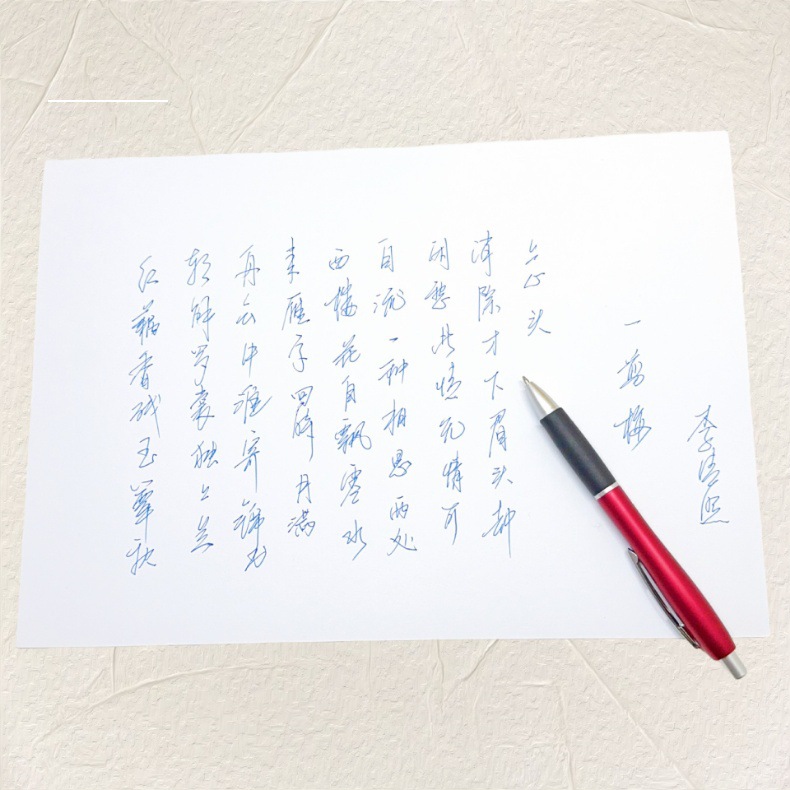 红藕香残玉簟秋
轻解罗裳独上兰
舟云中谁寄锦书
来雁字回时月满
西楼花自飘零水
自流一种相思两处
闲愁此情无情可
消除才下眉头却
上心头
一剪梅
李清照